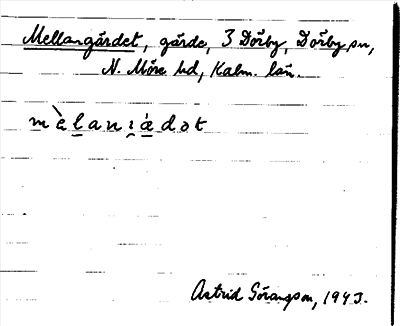 Mellangärdet, gärde, 3 Dörby, Dörby sn,
N. Möre hd, Kalm. län.
mèlanɿæ̀dət
Astrid Göransson, 1943.